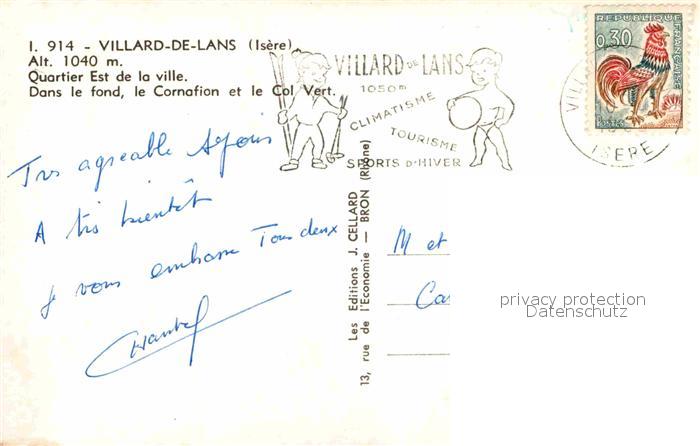 I. 914 - VILLARD-DE-LANS (Isère)
Alt. 1040 m.
Quartier Est de la ville.
Dans le fond, le Cornafion et le Col Vert.
VILLARD DE LANS
1050m
CLIMATISME
TOURISME
SPORTS D'HIVER
REPUBLIQUE FRANÇAISE
0,30
POSTES
ISERE
Très agréable séjour
A très bientôt
Je vous embrasse Tous deux
Chantal
Les Editions J. CELLARD
13, rue de l'Economie — BRON (Rhône)
M et
Ca
privacy protection
Datenschutz